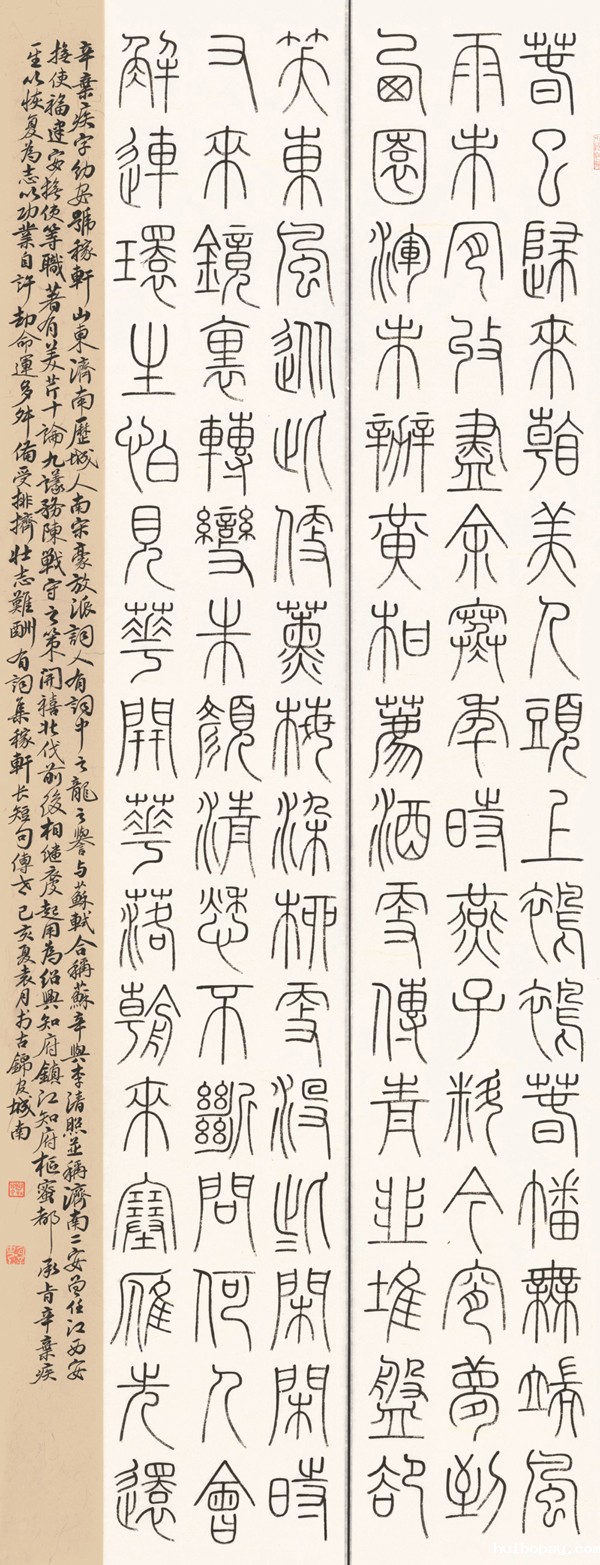 春已歸來看美人頭上裊裊春幡無端風
雨未肯收盡余寒年時燕子料今宵夢到
西園渾未辦黃柑薦酒更傳青韭堆盤卻
笑東風從此便薰梅染柳更沒些閑閑時
又來鏡裏轉變朱顏清愁不斷問何人會
解連環生怕見華開華落朝來塞雁先還
辛棄疾字幼安號稼軒山東濟南歷城人南宋豪放派詞人有詞中之龍之譽与蘇軾合稱蘇辛與李清照並稱濟南二安曾任江西安
撫使福建安撫使等職著有美芹十論九議務陳戰守之策開禧北伐前後相继度起用為紹興知府鎮江知府樞密都承旨辛棄疾
生以恢复為志以功業自許却命運多舛備受排擠壯志難酬有詞集稼軒长短句傳世己亥夏袁月书古錦官城南